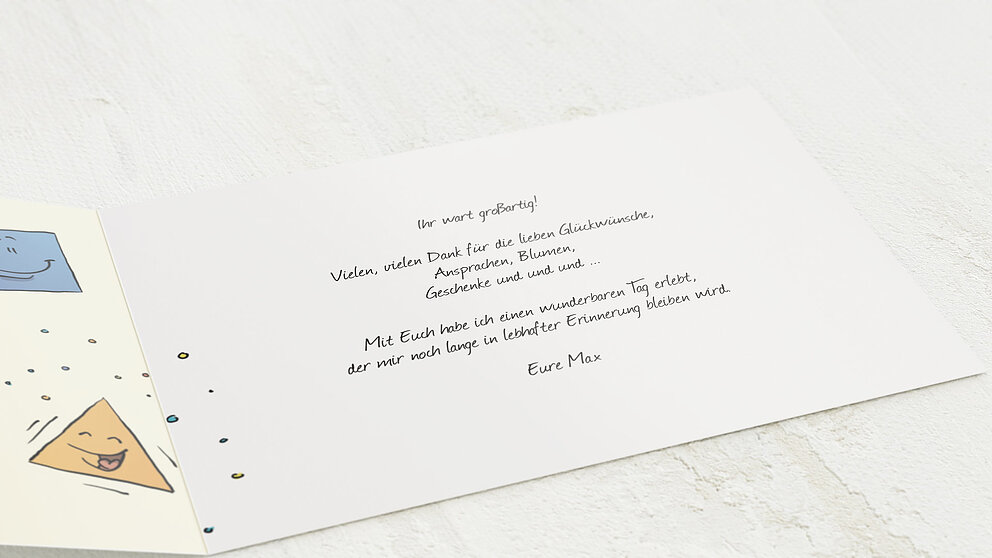 Ihr wart großartig!
Vielen, vielen Dank für die lieben Glückwünsche,
Ansprachen, Blumen,
Geschenke und und und ...
Mit Euch habe ich einen wunderbaren Tag erlebt,
der mir noch lange in lebhafter Erinnerung bleiben wird.
Eure Max